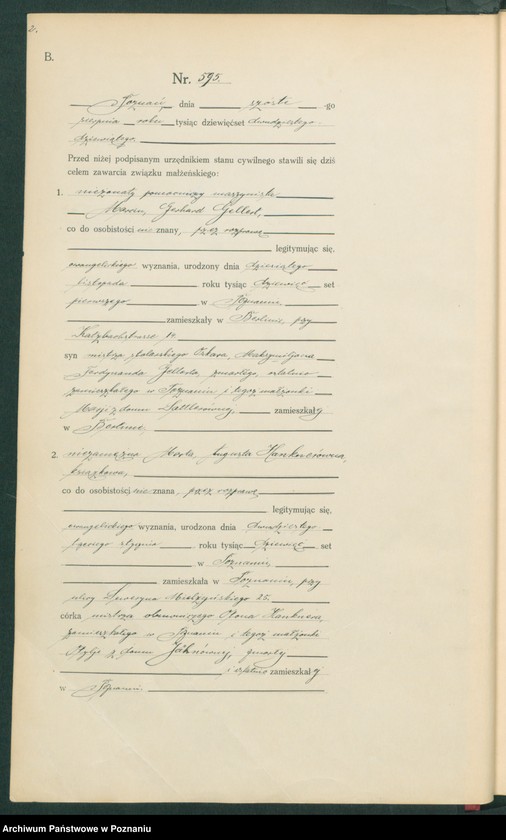 2.
B.
Nr. 595.
Poznań, dnia szóste -go
sierpnia roku tysiąc dziewięćset dwudziestego
dziewiątego
Przed niżej podpisanym urzędnikiem stanu cywilnego stawili się dziś
celem zawarcia związku małżeńskiego:
1. nieżonaty pomocniczy maszynista
Marcin, Gerhard Gellert,
co do osobistości nie znany, przez rozprawę
legitymując się,
ewangelickiego wyznania, urodzony dnia dziesiątego
listopada roku tysiąc dziewięć set
pierwszego w Poznaniu
zamieszkały w Berlinie, przy
Katzbachstrasse
syn mistrza stolarskiego Oskara, Maksymiljana
Ferdynanda Gellerta, zmarłego, ostatnio
zamieszkałego w Poznaniu i tegoż małżonki
Marji z domu zamieszkałej
w Berlinie.
2. niezamężna Herta, Augusta Hanknerówna,
co do osobistości nie znana, przez rozprawę
legitymując się,
ewangelickiego wyznania, urodzona dnia dwudziestego
stycznia roku tysiąc dziewięć set
w Poznaniu,
zamieszkała w Poznaniu, przy
ulicy Seweryna Mielżyńskiego 25.
córka mistrza Ottona Hanknera,
zamieszkałego w Poznaniu i tegoż małżonki
z domu zmarłej
i ostatnio zamieszkałej
w Poznaniu.
Archiwum Państwowe w Poznaniu